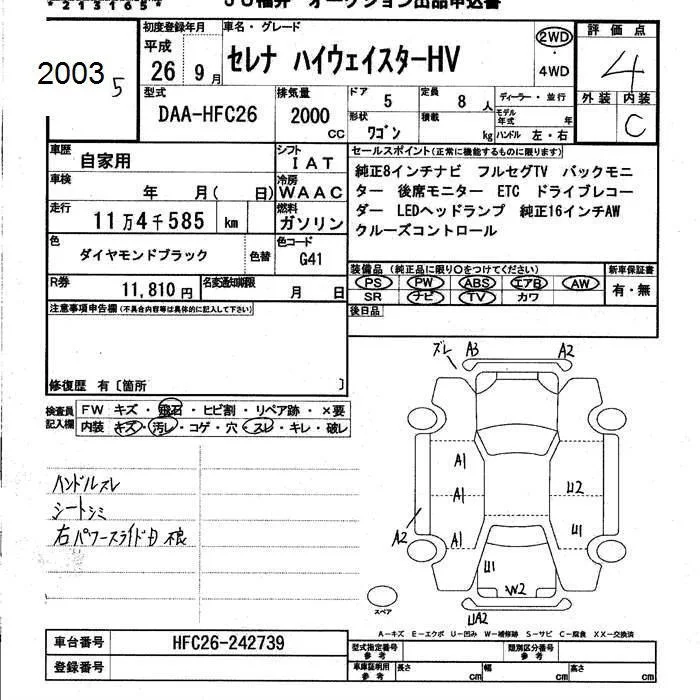 JU福井 オークション出品申込書
2003
5
初度登録年月
平成
26 9月
車名・グレード
セレナ ハイウェイスターHV
2WD
4WD
評価点
4
外装 内装
C
型式
DAA-HFC26
排気量
2000
CC
ドア
5
定員
8人
ディーラー・並行
形状
ワゴン
積載
kg
モデル年式
年
ハンドル 左・右
車歴
自家用
シフト
IAT
車検
年 月( 日)
冷房
WAAC
走行
11万4千585 km
燃料
ガソリン
色
ダイヤモンドブラック
色替
色コード
G41
R券
11,810円
名変通知期限
月 日
セールスポイント(正常に機能するものに限ります)
純正8インチナビ フルセグTV バックモニ
ター 後席モニター ETC ドライブレコー
ダー LEDヘッドランプ 純正16インチAW
クルーズコントロール
装備品 (純正品に限り○をつけてください)
PS PW ABS エアB AW
SR ナビ TV カワ
新車保証書
有・無
後日品
注意事項申告欄(不具合内容等は具体的に記入して下さい)
修復歴 有〔箇所 〕
検査員
記入欄
FW キズ・飛石・ヒビ割・リペア跡・×要
内装 キズ・汚レ・コゲ・穴・スレ・キレ・破レ
ハンドルスレ
シートシミ
右パワースライドD 不良
ズレ A3 A2
A1
A1
A1
A2
U2
U1
U1
W2
UA2
スペア
A-キズ E-エクボ U-凹み W-補修跡 S-サビ C-腐食 XX-交換済
車台番号
HFC26-242739
登録番号
型式指定番号
参考
類別区分番号
参考
車庫証明用
参考
長さ cm 幅 cm 高さ cm